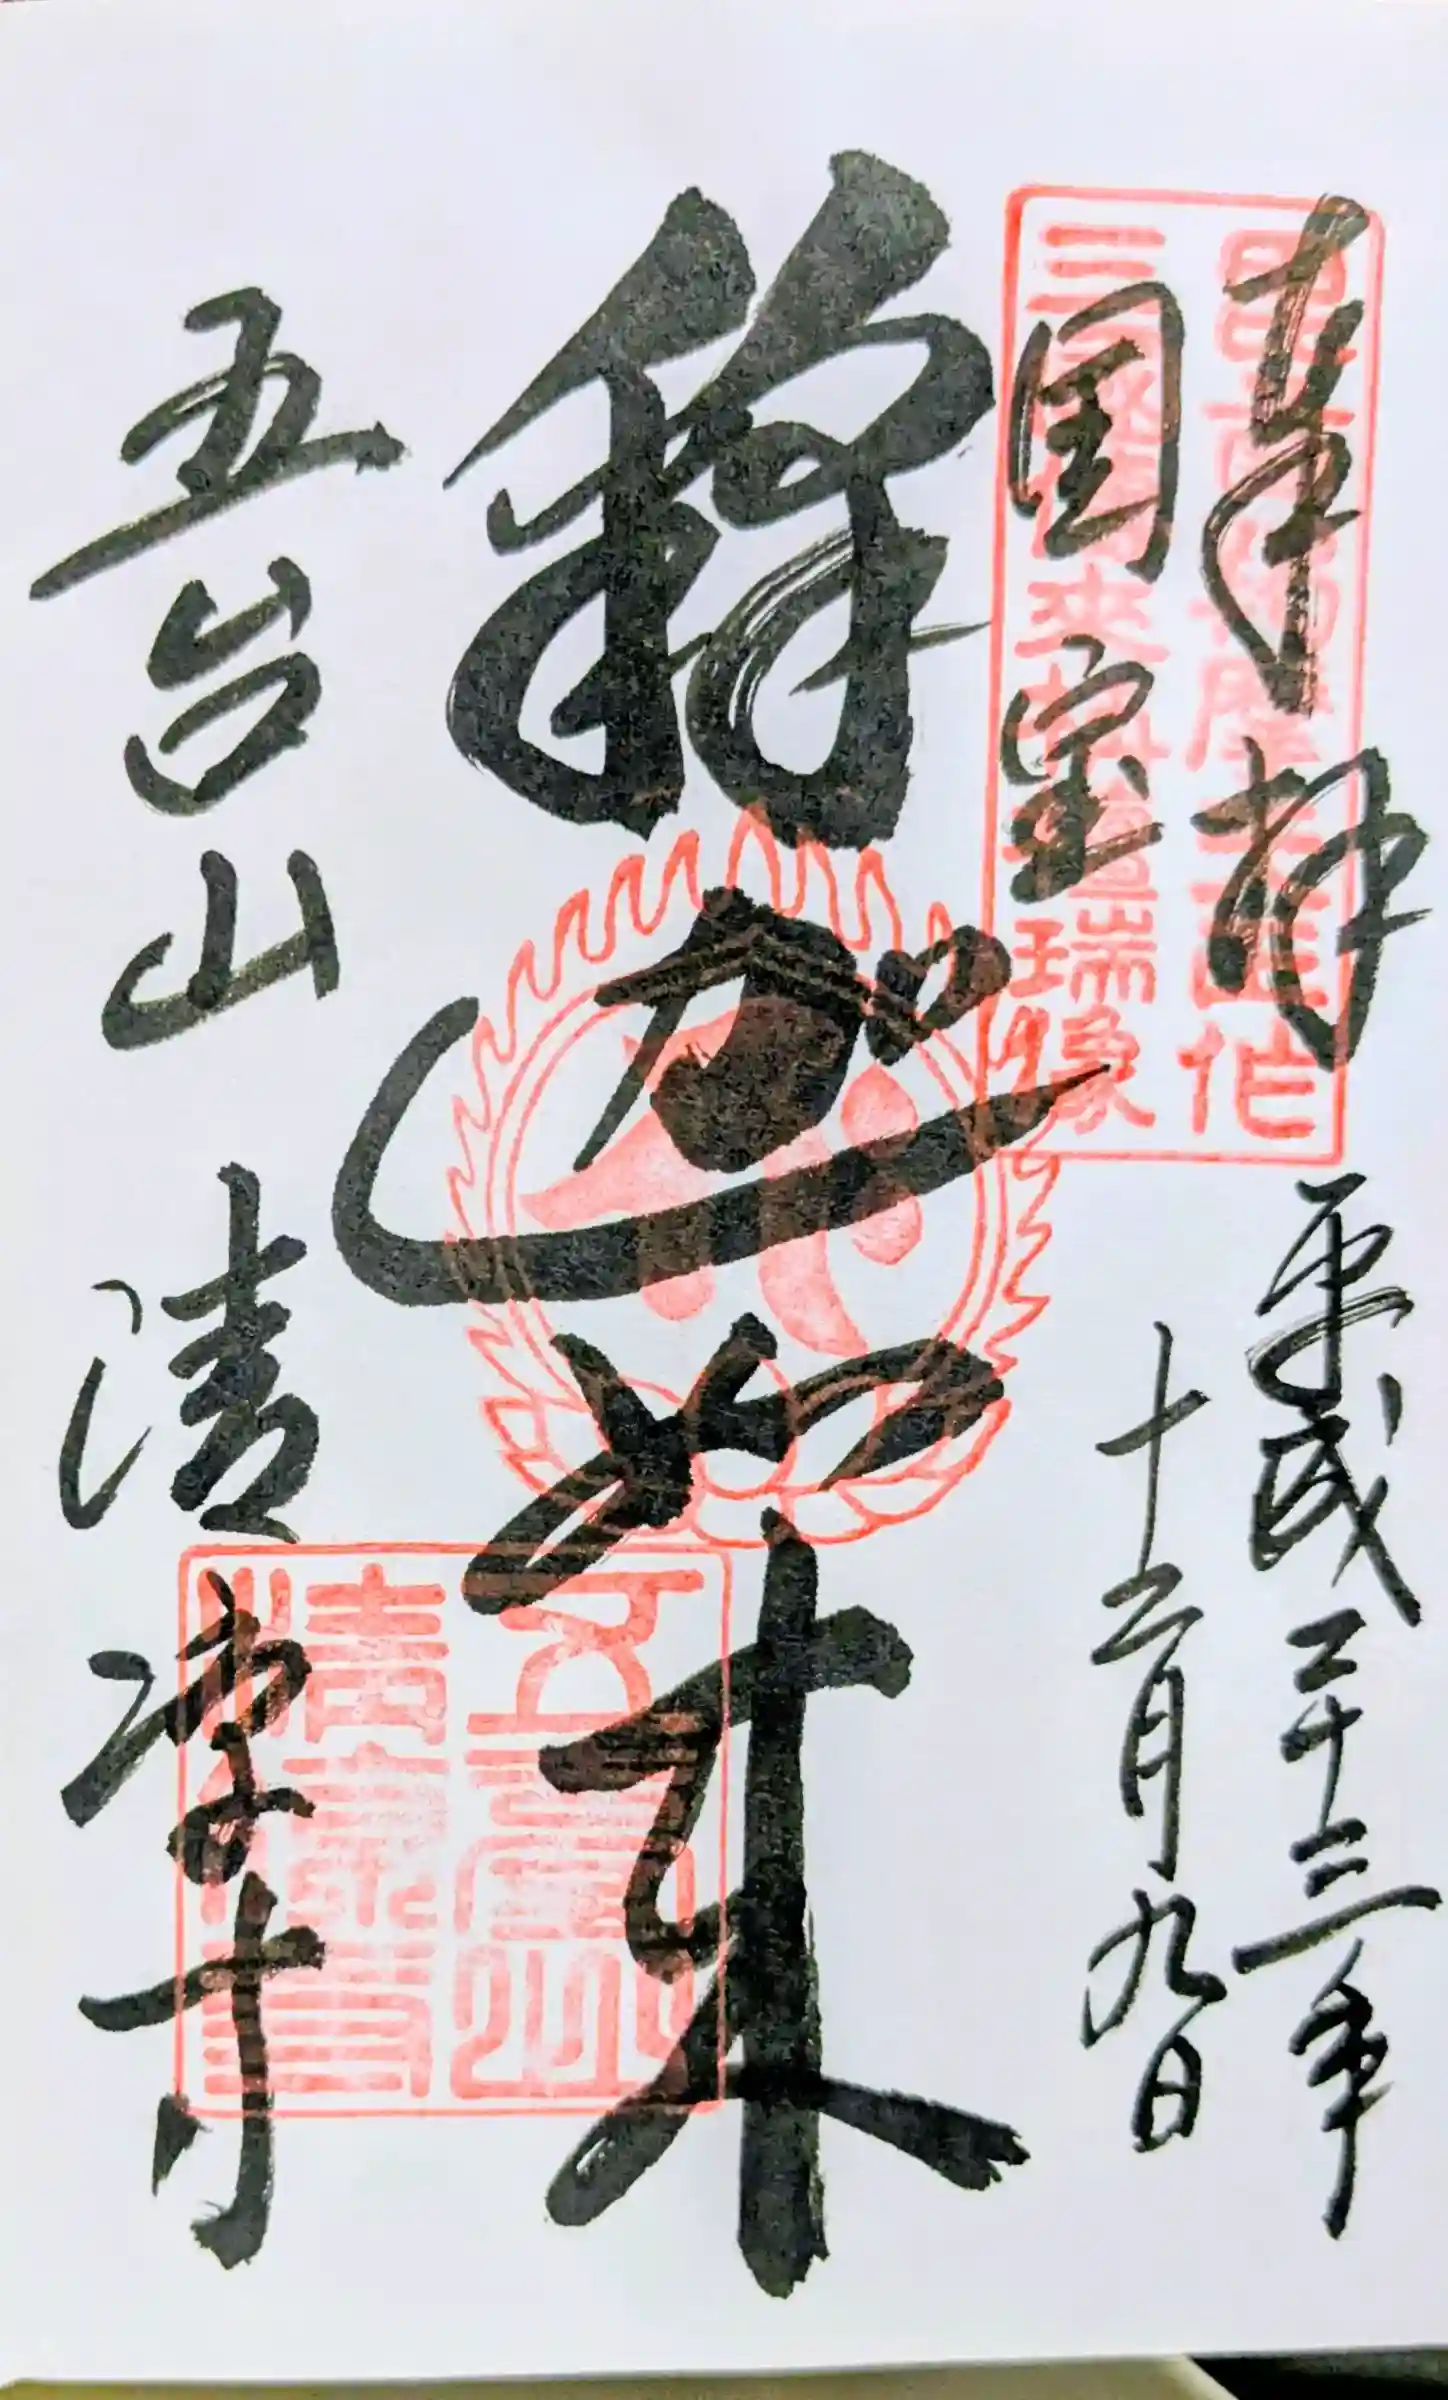 奉拝
平成二十三年
十二月九日
国宝
三國傳来栴檀瑞像
釋迦如来
五台山
清凉寺
五臺山
清凉寺